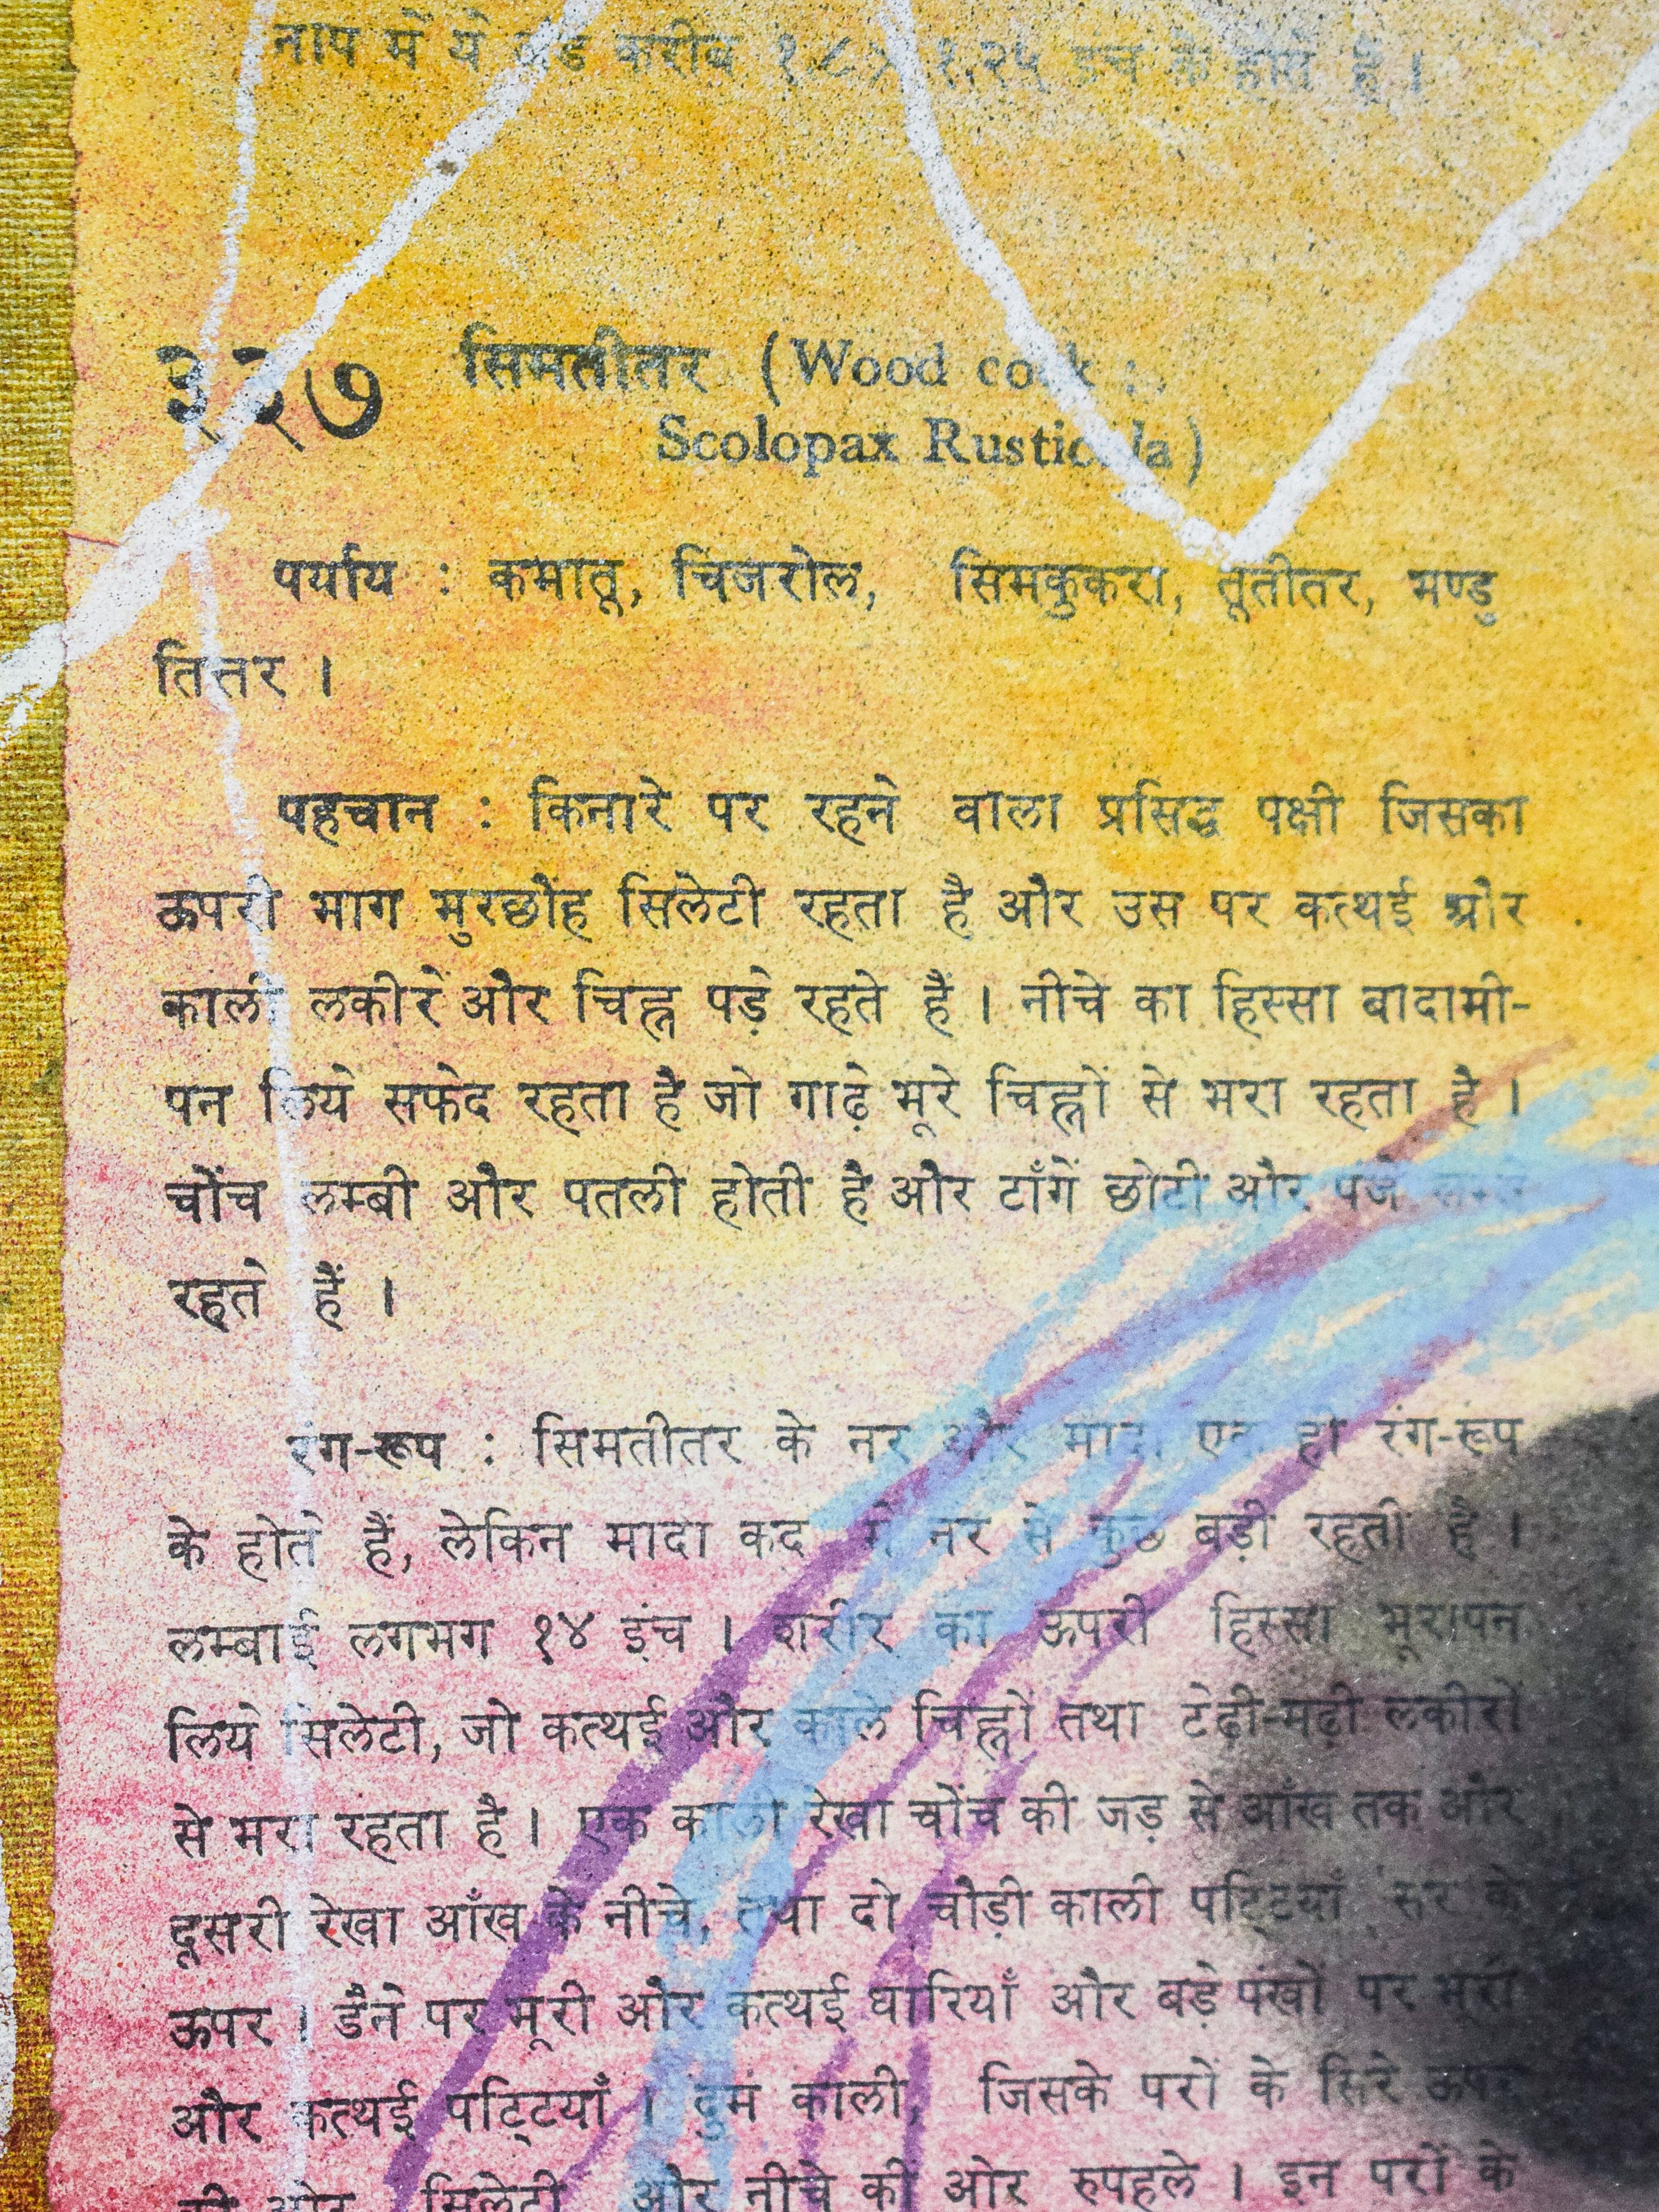 नाप में ये करीब १.२५ इंच के होते हैं।
३२७ सिमतीतर (Wood cock :
Scolopax Rusticola)
पर्याय : कमातू, चिजरोल, सिमकुकरा, तूतीतर, मण्डु
तितर।
पहचान : किनारे पर रहने वाला प्रसिद्ध पक्षी जिसका
ऊपरी भाग भुरछौंह सिलेटी रहता है और उस पर कत्थई और
काली लकीरें और चिह्न पड़े रहते हैं। नीचे का हिस्सा बादामी-
पन लिये सफेद रहता है जो गाढ़े भूरे चिह्नों से भरा रहता है।
चोंच लम्बी और पतली होती है और टाँगें छोटी और पंजे लम्बे
रहते हैं।
रंग-रूप : सिमतीतर के नर और मादा एक ही रंग-रूप
के होते हैं, लेकिन मादा कद में नर से कुछ बड़ी रहती है।
लम्बाई लगभग १४ इंच। शरीर का ऊपरी हिस्सा भूरापन
लिये सिलेटी, जो कत्थई और काले चिह्नों तथा टेढ़ी-मेढ़ी लकीरों
से भरा रहता है। एक काली रेखा चोंच की जड़ से आँख तक और
दूसरी रेखा आँख के नीचे, तथा दो चौड़ी काली पट्टियाँ सर के
ऊपर। डैने पर भूरी और कत्थई धारियाँ और बड़े पंखों पर भूरी
और कत्थई पट्टियाँ। दुम काली, जिसके परों के सिरे ऊपर
की ओर सिलेटी और नीचे की ओर रुपहले। इन परों के